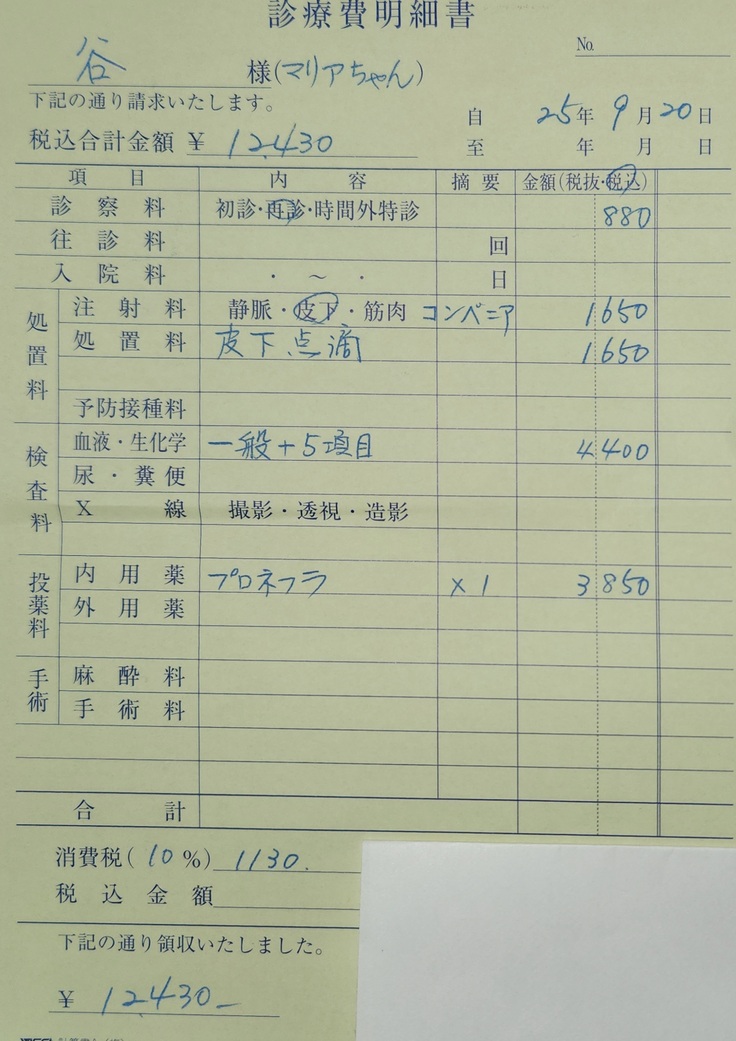 診療費明細書
No.
谷 様(マリアちゃん)
下記の通り請求いたします。
自 25年 9月20日
税込合計金額 ¥ 12,430
至 年 月 日
項目 内容 摘要 金額(税抜・税込)
診察料 初診・再診・時間外特診 880
往診料 回
入院料 ・ ~ ・ 日
処置料
注射料 静脈・皮下・筋肉 コンベニア 1650
処置料 皮下点滴 1650
予防接種料
検査料
血液・生化学 一般+5項目 4400
尿・糞便
X線 撮影・透視・造影
投薬料
内用薬 プロネフラ ×1 3850
外用薬
手術
麻酔料
手術料
合計
消費税(10%) 1130.
税込金額
下記の通り領収いたしました。
¥ 12,430-